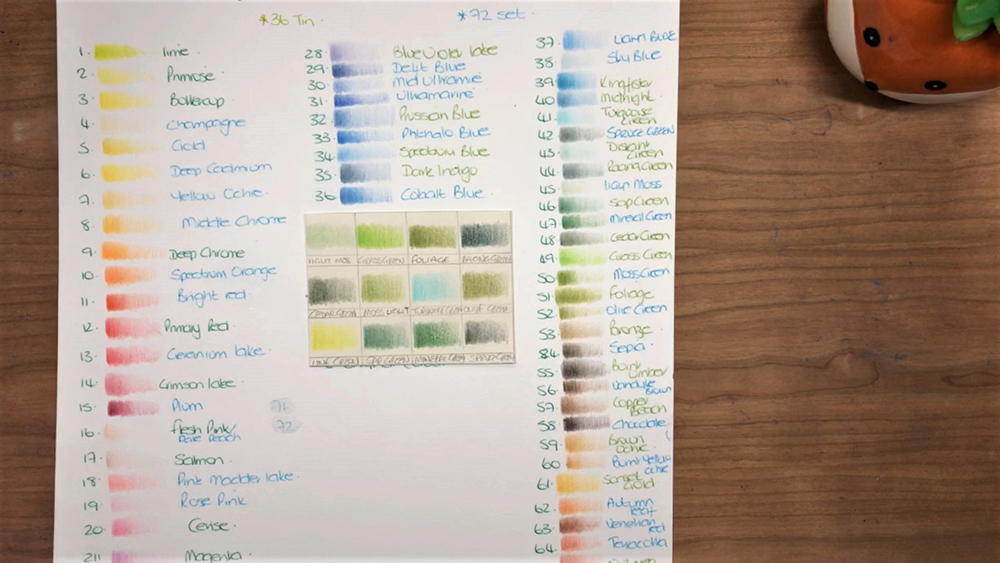 *36 Tin.
*72 set.
1. lime
2. Primrose
3. Buttercup
4. Champagne
5. Gold
6. Deep Cadmium
7. Yellow Ochre.
8. Middle Chrome
9. Deep Chrome
10. Spectrum Orange
11. Bright red
12. Primary Red.
13. Geranium lake.
14. Crimson lake.
15. Plum
16. flesh Pink/
Pale Peach
17. Salmon
18. Pink Madder lake.
19. Rose Pink
20. Cerise.
21. Magenta
71
72
28 Blue Violet lake
29. Delft Blue
30. Mid Ultramine
31. Ultramarine
32. Prussian Blue
33. Phthalo Blue
34. Spectrum Blue
35. Dark Indigo
36 Cobalt Blue.
LIGHT MOSS
GRASS GREEN
FOLIAGE
CEDAR GREEN
MOSS
SAP GREEN
MINERAL GREEN
37. LIGHT BLUE
38. Sky Blue
39. Kingfisher
40. Midnight.
41. Turquoise
Green
42 SPRUCE GREEN
43. Distant
Green
44. Racing Green
45. light Moss
46. Sap Green
47. Mineral Green
48. Cedar Green
49. Grass Green
50. Moss Green
51. Foliage
52. Olive Green
53. Bronze
54. Sepia
55. Burnt
Umber
56. Vandyke
Brown
57. Copper
Beach
58. Chocolate
59. Brown
Ochre
60. Burnt Yellow
Ochre
61. Sunset
Gold
62. Autumn
leaf
63. Venetian
red
64. Terracotta